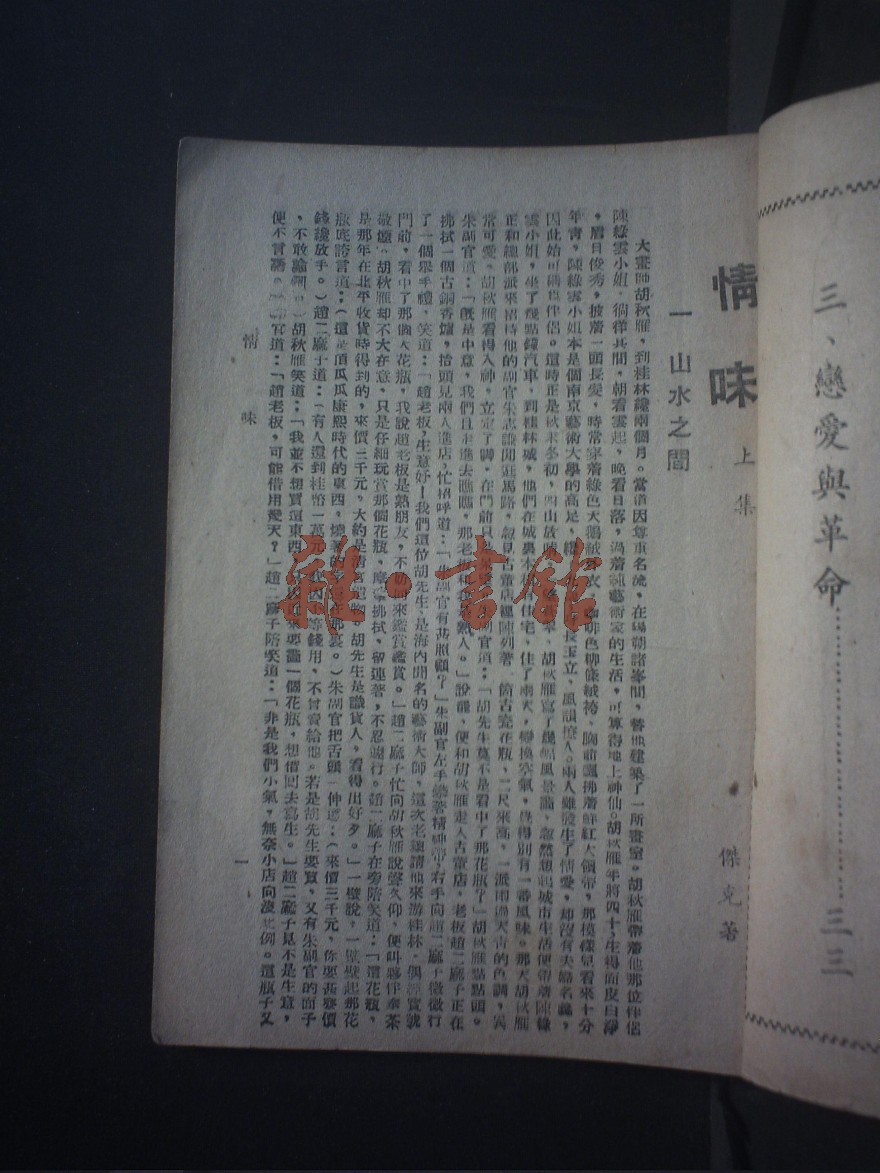 三、戀愛與革命……三三
情味 上集
傑克著
一 山水之間
大畫師胡秋雁，到桂林纔兩個月。當道因尊重名流，在陽朔諸峯間，替他建築了一所畫室。胡秋雁帶着他那位伴侶
陳綠雲小姐，徜徉其間，朝看雲起，晚看日落，過着純藝術家的生活，可算得地上神仙。胡秋雁年將四十，生得面皮白淨
，眉目俊秀，披着一頭長髮，時常穿着綠色天鵝絨外衣，咖啡色柳條絨袴，胸前飄拂着鮮紅大領帶，那模樣兒看來十分
年青，陳綠雲小姐本是個南京藝術大學的高足，長玉立，風韻撩人。兩人雖發生了情愛，却沒有夫婦名義，
因此始可稱為伴侶。這時正是秋末冬初，四山放晴，胡秋雁寫了幾幅風景畫，忽然想起城市生活便帶着陳綠
雲小姐，坐了幾點鐘汽車，到桂林城，他們在城裏本有住宅，住了兩天，變換空氣，覺得別有一番風味。那天胡秋雁
正和總部派來招待他的副官朱志謙閒逛馬路，忽見古董店裏陳列著一個古瓷花瓶，二尺來高，一派雨過天青的色調，
常可愛。胡秋雁看得入神，立定了脚，在門前只是副官道：「胡先生莫不是看中了那花瓶？」胡秋雁點點頭。
朱副官道：「旣是中意，我們且未進去瞧瞧，那老板和我是熟人。」說罷，便和胡秋雁走入古董店。老板趙二麻子正在
拂拭一個古銅香爐，抬頭見兩人進店，忙招呼道：「朱副官有甚照顧？」朱副官左手按著精神帶，右手向趙二麻子微微行
了一個舉手禮，笑道：「趙老板，生意好！我們這位胡先生，是海內聞名的藝術大師，這次老遠請他來游桂林，偶經寶號
門前，看中了那個大花瓶，我說趙老板是熟朋友，不妨進來鑑賞鑑賞。」趙二麻子忙向胡秋雁說聲久仰，便叫夥伴奉茶
敬烟。胡秋雁却不大在意，只是仔細玩賞那個花瓶，摩挲拂拭，留連著，不忍遽行。趙二麻子在旁陪笑道：「這花瓶，
是那年在北平收貨時得到的，來價三千元，大約是清宮遺物。胡先生是識貨人，看得出好歹。」一壁說，一壁豎起那花
瓶底誇言道：（這是頂瓜瓜康熙時代的東西，燒著的字在那裏。）朱副官把舌頭一伸道：（來價三千元，你要甚麼價
錢纔放手。）趙二麻子道：（有人還到桂幣一萬元，我因不等錢用，不曾賣給他。若是胡先生要買，又有朱副官的面子
，不敢論價。）胡秋雁笑道：「我並不想買這東西，只因近來要畫一個花瓶，想借回去寫生。」趙二麻子見不是生意，
便不言語。朱副官道：「趙老板，可能借用幾天？」趙二麻子陪笑道：「非是我們小氣，無奈小店向沒此例。這瓶子又
情味
一
雜·書館